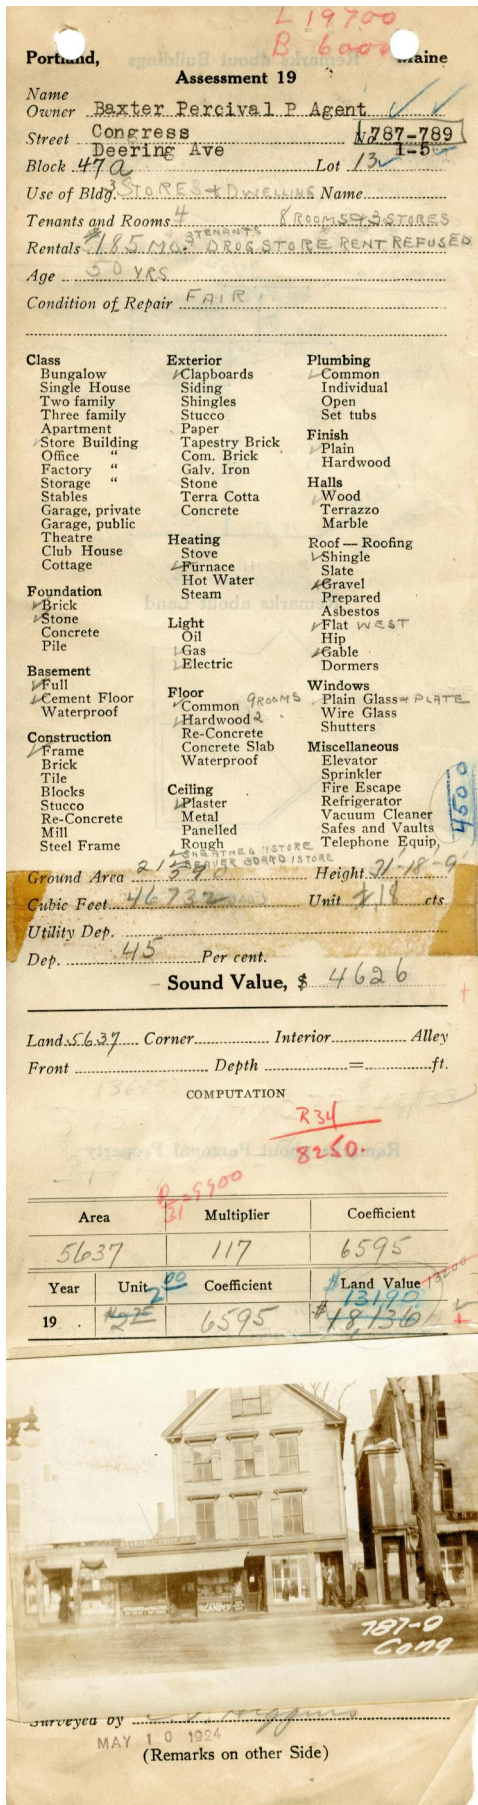 L 19700
B 6000
Portland, Maine
Assessment 19
Name
Owner Baxter Percival P Agent
Street Congress No 787-789
Deering Ave 1-5
Block 47a Lot 13
Use of Bldg. 3 STORES & DWELLING Name
Tenants and Rooms 4 8 ROOMS & 3 STORES
Rentals $185 MO. 3 TENANTS DRUG STORE RENT REFUSED
Age 50 YRS
Condition of Repair FAIR
Class
Bungalow
Single House
Two family
Three family
Apartment
Store Building
Office "
Factory "
Storage "
Stables
Garage, private
Garage, public
Theatre
Club House
Cottage
Foundation
Brick
Stone
Concrete
Pile
Basement
Full
Cement Floor
Waterproof
Construction
Frame
Brick
Tile
Blocks
Stucco
Re-Concrete
Mill
Steel Frame
Exterior
Clapboards
Siding
Shingles
Stucco
Paper
Tapestry Brick
Com. Brick
Galv. Iron
Stone
Terra Cotta
Concrete
Heating
Stove
Furnace
Hot Water
Steam
Light
Oil
Gas
Electric
Floor
Common 9 ROOMS
Hardwood 2
Re-Concrete
Concrete Slab
Waterproof
Ceiling
Plaster
Metal
Panelled
Rough
SHEATHED 1 STORE
BEAVER BOARD 1 STORE
Plumbing
Common
Individual
Open
Set tubs
Finish
Plain
Hardwood
Halls
Wood
Terrazzo
Marble
Roof — Roofing
Shingle
Slate
Gravel
Prepared
Asbestos
Flat WEST
Hip
Gable
Dormers
Windows
Plain Glass & PLATE
Wire Glass
Shutters
Miscellaneous
Elevator
Sprinkler
Fire Escape
Refrigerator
Vacuum Cleaner
Safes and Vaults
Telephone Equip,
4500
Ground Area Height 31-18-9
Cubic Feet 46732 Unit 18 cts.
Utility Dep.
Dep. 45 Per cent.
Sound Value, $ 4626
Land 5637 Corner Interior Alley
Front Depth = ft.
COMPUTATION
R34
8250.
R 9900
31
Area Multiplier Coefficient
5637 117 6595
Year Unit 2 00 Coefficient $ Land Value 13200
13190
19 2 75 6595 $18,136
787-9
Cong
Surveyed by Higgins
MAY 10 1924
(Remarks on other Side)